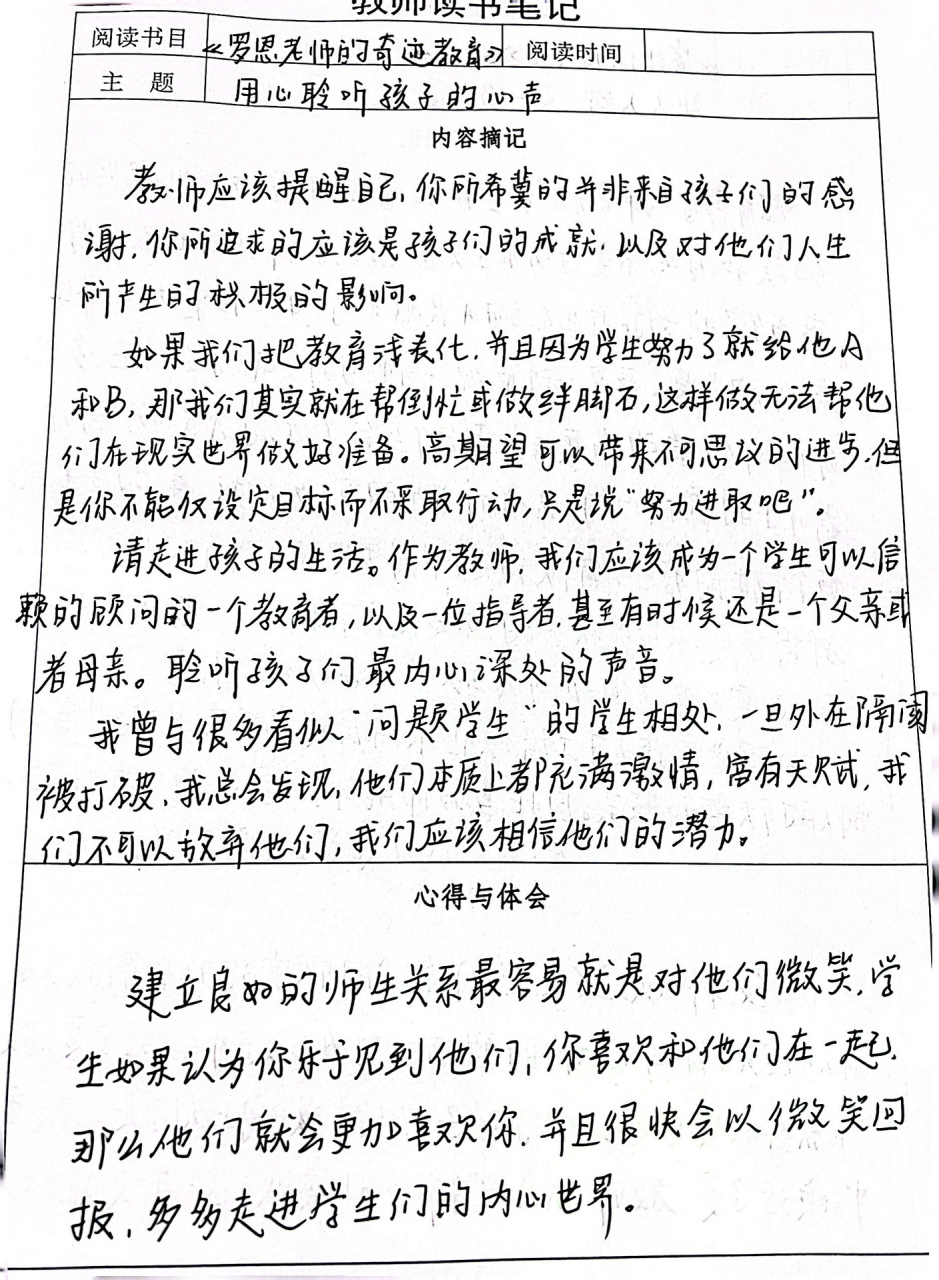 教师读书笔记
阅读书目 《罗恩老师的奇迹教育》 阅读时间
主 题 用心聆听孩子的心声
内容摘记
教师应该提醒自己,你所希冀的并非来自孩子们的感
谢,你所追求的应该是孩子们的成就,以及对他们人生
所产生的积极的影响。
如果我们把教育浅表化,并且因为学生努力了就给他A
和B,那我们其实就在帮倒忙或做绊脚石,这样做无法帮他
们在现实世界做好准备。高期望可以带来不可思议的进步,但
是你不能仅设定目标而不采取行动,只是说“努力进取吧”。
请走进孩子的生活。作为教师,我们应该成为一个学生可以信
赖的顾问的一个教育者,以及一位指导者,甚至有时候还是一个父亲或
者母亲。聆听孩子们最内心深处的声音。
我曾与很多看似“问题学生”的学生相处,一旦外在隔阂
被打破,我总会发现,他们本质上都充满激情,富有天赋,我
们不可以放弃他们,我们应该相信他们的潜力。
心得与体会
建立良好的师生关系最容易就是对他们微笑,学
生如果认为你乐于见到他们,你喜欢和他们在一起,
那么他们就会更加喜欢你,并且很快会以微笑回
报,多多走进学生们的内心世界。